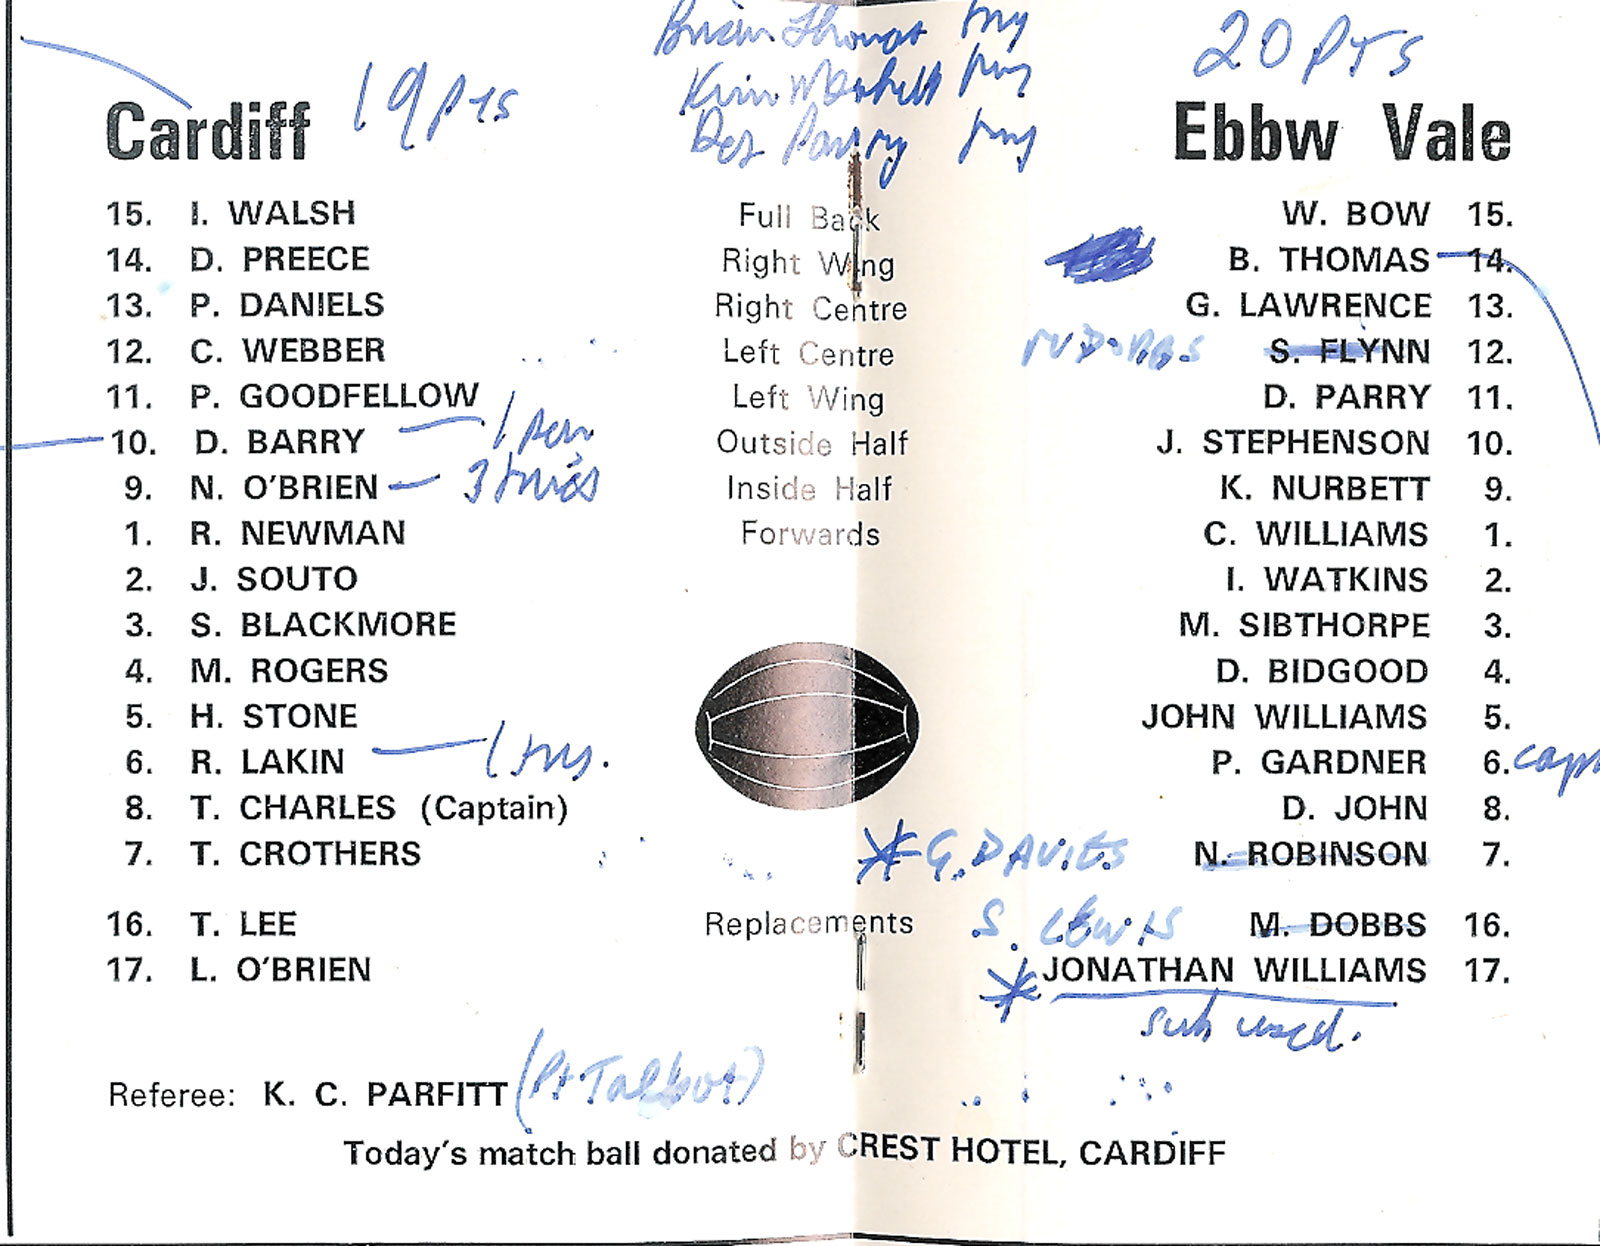 Brian Thomas try
20 PTS
19 pts
Kevin Marshall try
Cardiff
Ebbw Vale
Des Parry try
15. I. WALSH Full Back W. BOW 15.
14. D. PREECE Right Wing B. THOMAS 14.
13. P. DANIELS Right Centre G. LAWRENCE 13.
12. C. WEBBER Left Centre M DOBBS S. FLYNN 12.
11. P. GOODFELLOW Left Wing D. PARRY 11.
10. D. BARRY 1 pen Outside Half J. STEPHENSON 10.
9. N. O'BRIEN 3 tries Inside Half K. NURBETT 9.
1. R. NEWMAN Forwards C. WILLIAMS 1.
2. J. SOUTO I. WATKINS 2.
3. S. BLACKMORE M. SIBTHORPE 3.
4. M. ROGERS D. BIDGOOD 4.
5. H. STONE JOHN WILLIAMS 5.
6. R. LAKIN 1 try. P. GARDNER 6. capt
8. T. CHARLES (Captain) D. JOHN 8.
7. T. CROTHERS * G. DAVIES N. ROBINSON 7.
16. T. LEE Replacements S. LEWIS M. DOBBS 16.
17. L. O'BRIEN * JONATHAN WILLIAMS 17.
sub used.
Referee: K. C. PARFITT (Pt Talbot)
Today's match ball donated by CREST HOTEL, CARDIFF